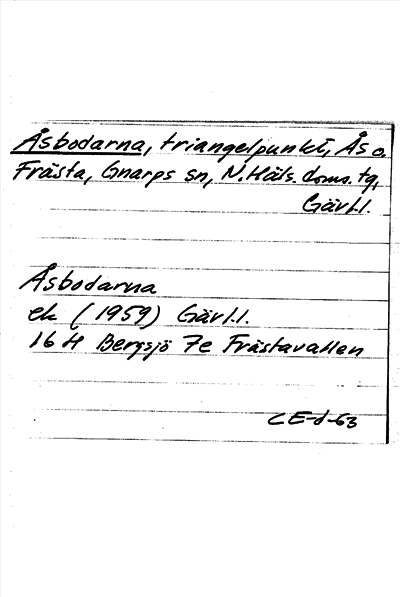 Åsbodarna, triangelpunkt, Ås o.
Frästa, Gnarps sn, N. Häls. doms. tg,
Gävl.l.
Åsbodarna
ek (1959) Gävl.l.
16 H Bergsjö 7e Frästavallen
CE-d-63